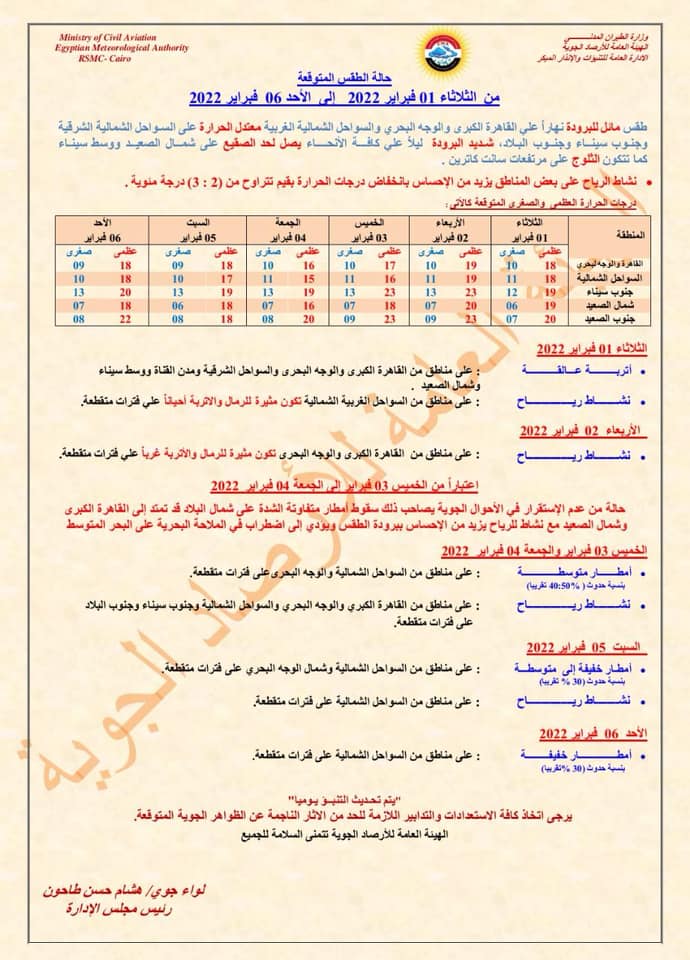 Ministry of Civil Aviation
Egyptian Meteorological Authority
RSMC- Cairo
وزارة الطيران المدنـــــي
الهيئة العامة للأرصاد الجوية
الادارة العامة للتنبؤات والإنذار المبكر
حالة الطقس المتوقعة
من الثلاثاء 01 فبراير 2022 إلى الأحد 06 فبراير 2022
طقس مائل للبرودة نهاراً علي القاهرة الكبرى والوجه البحري والسواحل الشمالية الغربية معتدل الحرارة على السواحل الشمالية الشرقية
وجنوب سيناء وجنوب البلاد، شديد البرودة ليلاً علي كافة الأنحاء يصل لحد الصقيع على شمال الصعيد ووسط سيناء
كما تتكون الثلوج على مرتفعات سانت كاترين .
• نشاط الرياح على بعض المناطق يزيد من الإحساس بأنخفاض درجات الحرارة بقيم تتراوح من (2 : 3) درجة مئوية .
درجات الحرارة العظمى والصغرى المتوقعة كالأتي:
المنطقة الثلاثاء 01 فبراير الأربعاء 02 فبراير الخميس 03 فبراير الجمعة 04 فبراير السبت 05 فبراير الأحد 06 فبراير
عظمى صغرى عظمى صغرى عظمى صغرى عظمى صغرى عظمى صغرى عظمى صغرى
القاهرة والوجه لبحري 18 10 19 10 17 10 16 10 18 09 18 09
السواحل الشمالية 18 11 19 11 16 11 15 11 17 10 18 10
جنوب سيناء 19 12 23 13 23 13 19 13 19 13 20 13
شمال الصعيد 19 06 20 07 18 07 16 07 18 06 18 07
جنوب الصعيد 20 07 23 09 23 09 20 08 18 08 22 08
الثلاثاء 01 فبراير 2022
• أتربـــــة عـالقـــــة : على مناطق من القاهرة الكبرى والوجه البحرى والسواحل الشرقية ومدن القناة ووسط سيناء
وشمال الصعيد .
• نشـــاط ريـــــاح : على مناطق من السواحل الغربية الشمالية تكون مثيرة للرمال والاتربة أحياناً علي فترات متقطعة.
الأربعاء 02 فبراير 2022
• نشـــاط ريـــــاح : على مناطق من القاهرة الكبرى والوجه البحرى تكون مثيرة للرمال والأتربة غرباً علي فترات متقطعة.
اعتباراً من الخميس 03 فبراير إلى الجمعة 04 فبراير 2022
حالة من عدم الإستقرار في الأحوال الجوية يصاحب ذلك سقوط أمطار متفاوتة الشدة على شمال البلاد قد تمتد إلى القاهرة الكبرى
وشمال الصعيد مع نشاط للرياح يزيد من الإحساس ببرودة الطقس ويودي إلى اضطراب في الملاحة البحرية على البحر المتوسط
الخميس 03 فبراير والجمعة 04 فبراير 2022
• أمطـــار متوسطـــة : على مناطق من السواحل الشمالية والوجه البحرى على فترات متقطعة.
بنسبة حدوث ( 40:50% تقريبا)
• نشـــاط ريـــــاح : على مناطق من القاهرة الكبري والوجه البحري والسواحل الشمالية وجنوب سيناء وجنوب البلاد
على فترات متقطعة.
السبت 05 فبراير 2022
• أمطار خفيفة إلى متوسطـة : على مناطق من السواحل الشمالية وشمال الوجه البحري على فترات متقطعة.
بنسبة حدوث (30 % تقريبا)
• نشـــاط ريـــــاح : على مناطق من السواحل الشمالية على فترات متقطعة.
الأحد 06 فبراير 2022
• أمطـــار خفيفـــة : على مناطق من السواحل الشمالية على فترات متقطعة.
بنسبة حدوث (30 %تقريبا)
"يتم تحديث التنبـؤ يـوميا"
يرجى اتخاذ كافة الاستعدادات والتدابير اللازمة للحد من الاثار الناجمة عن الظواهر الجوية المتوقعة.
الهيئة العامة للأرصاد الجوية تتمنى السلامة للجميع
لواء جوي/ هشام حسن طاحون
رئيس مجلس الإدارة
الهيئة العامة للأرصاد الجوية